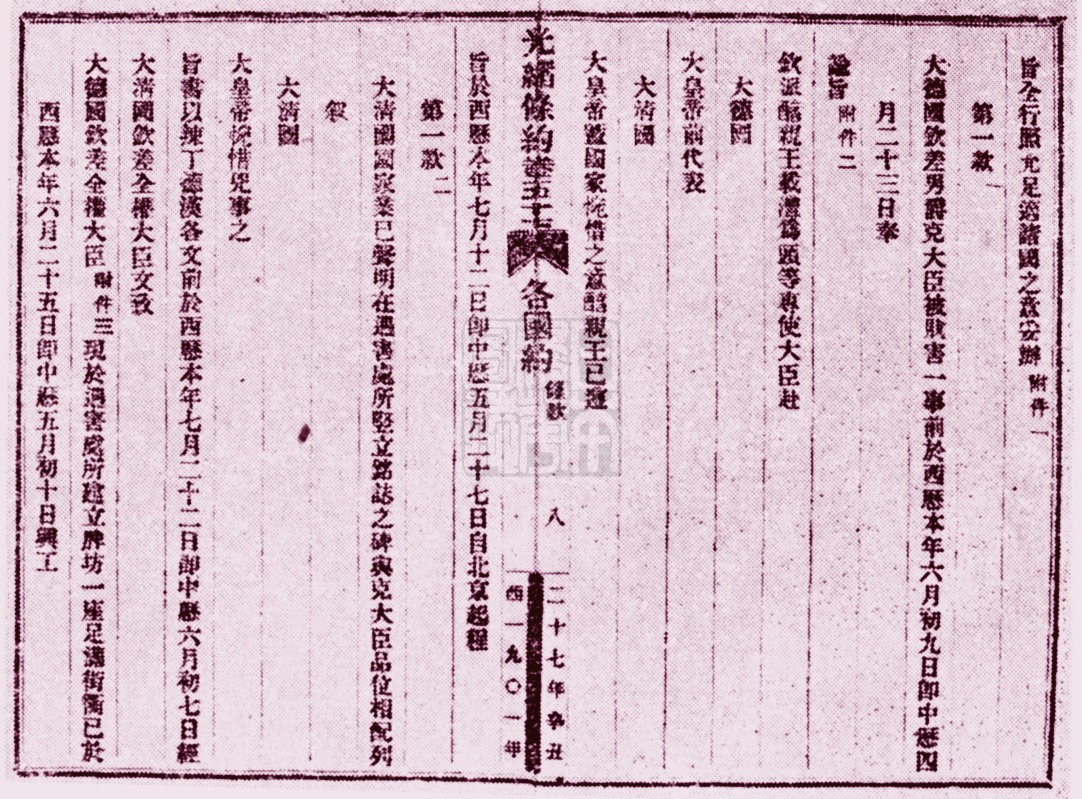 旨全行照允足適諸國之意妥辦附件一
第一款一
大德國欽差男爵克大臣被戕害一事前於西歷本年六月初九日卽中歷四
月二十三日奉
諭旨附件二
欽派醇親王載灃爲頭等專使大臣赴
大德國
大皇帝前代表
大清國
大皇帝曁國家惋惜之意醇親王已遵
光緒條約卷 各國約 條款 八 二十七年辛丑
西一九〇一年
旨於西歷本年七月十二日卽中歷五月二十七日自北京起程
第一款二
大清國國家業已聲明在遇害處所竪立銘誌之碑與克大臣品位相配列
敘
大清國
大皇帝惋惜兇事之
旨書以辣丁德漢各文前於西歷本年七月二十二日卽中歷六月初七日經
大清國欽差全權大臣文致
大德國欽差全權大臣附件三現於遇害處所建立牌坊一座足滿街衢已於
西歷本年六月二十五日卽中歷五月初十日興工